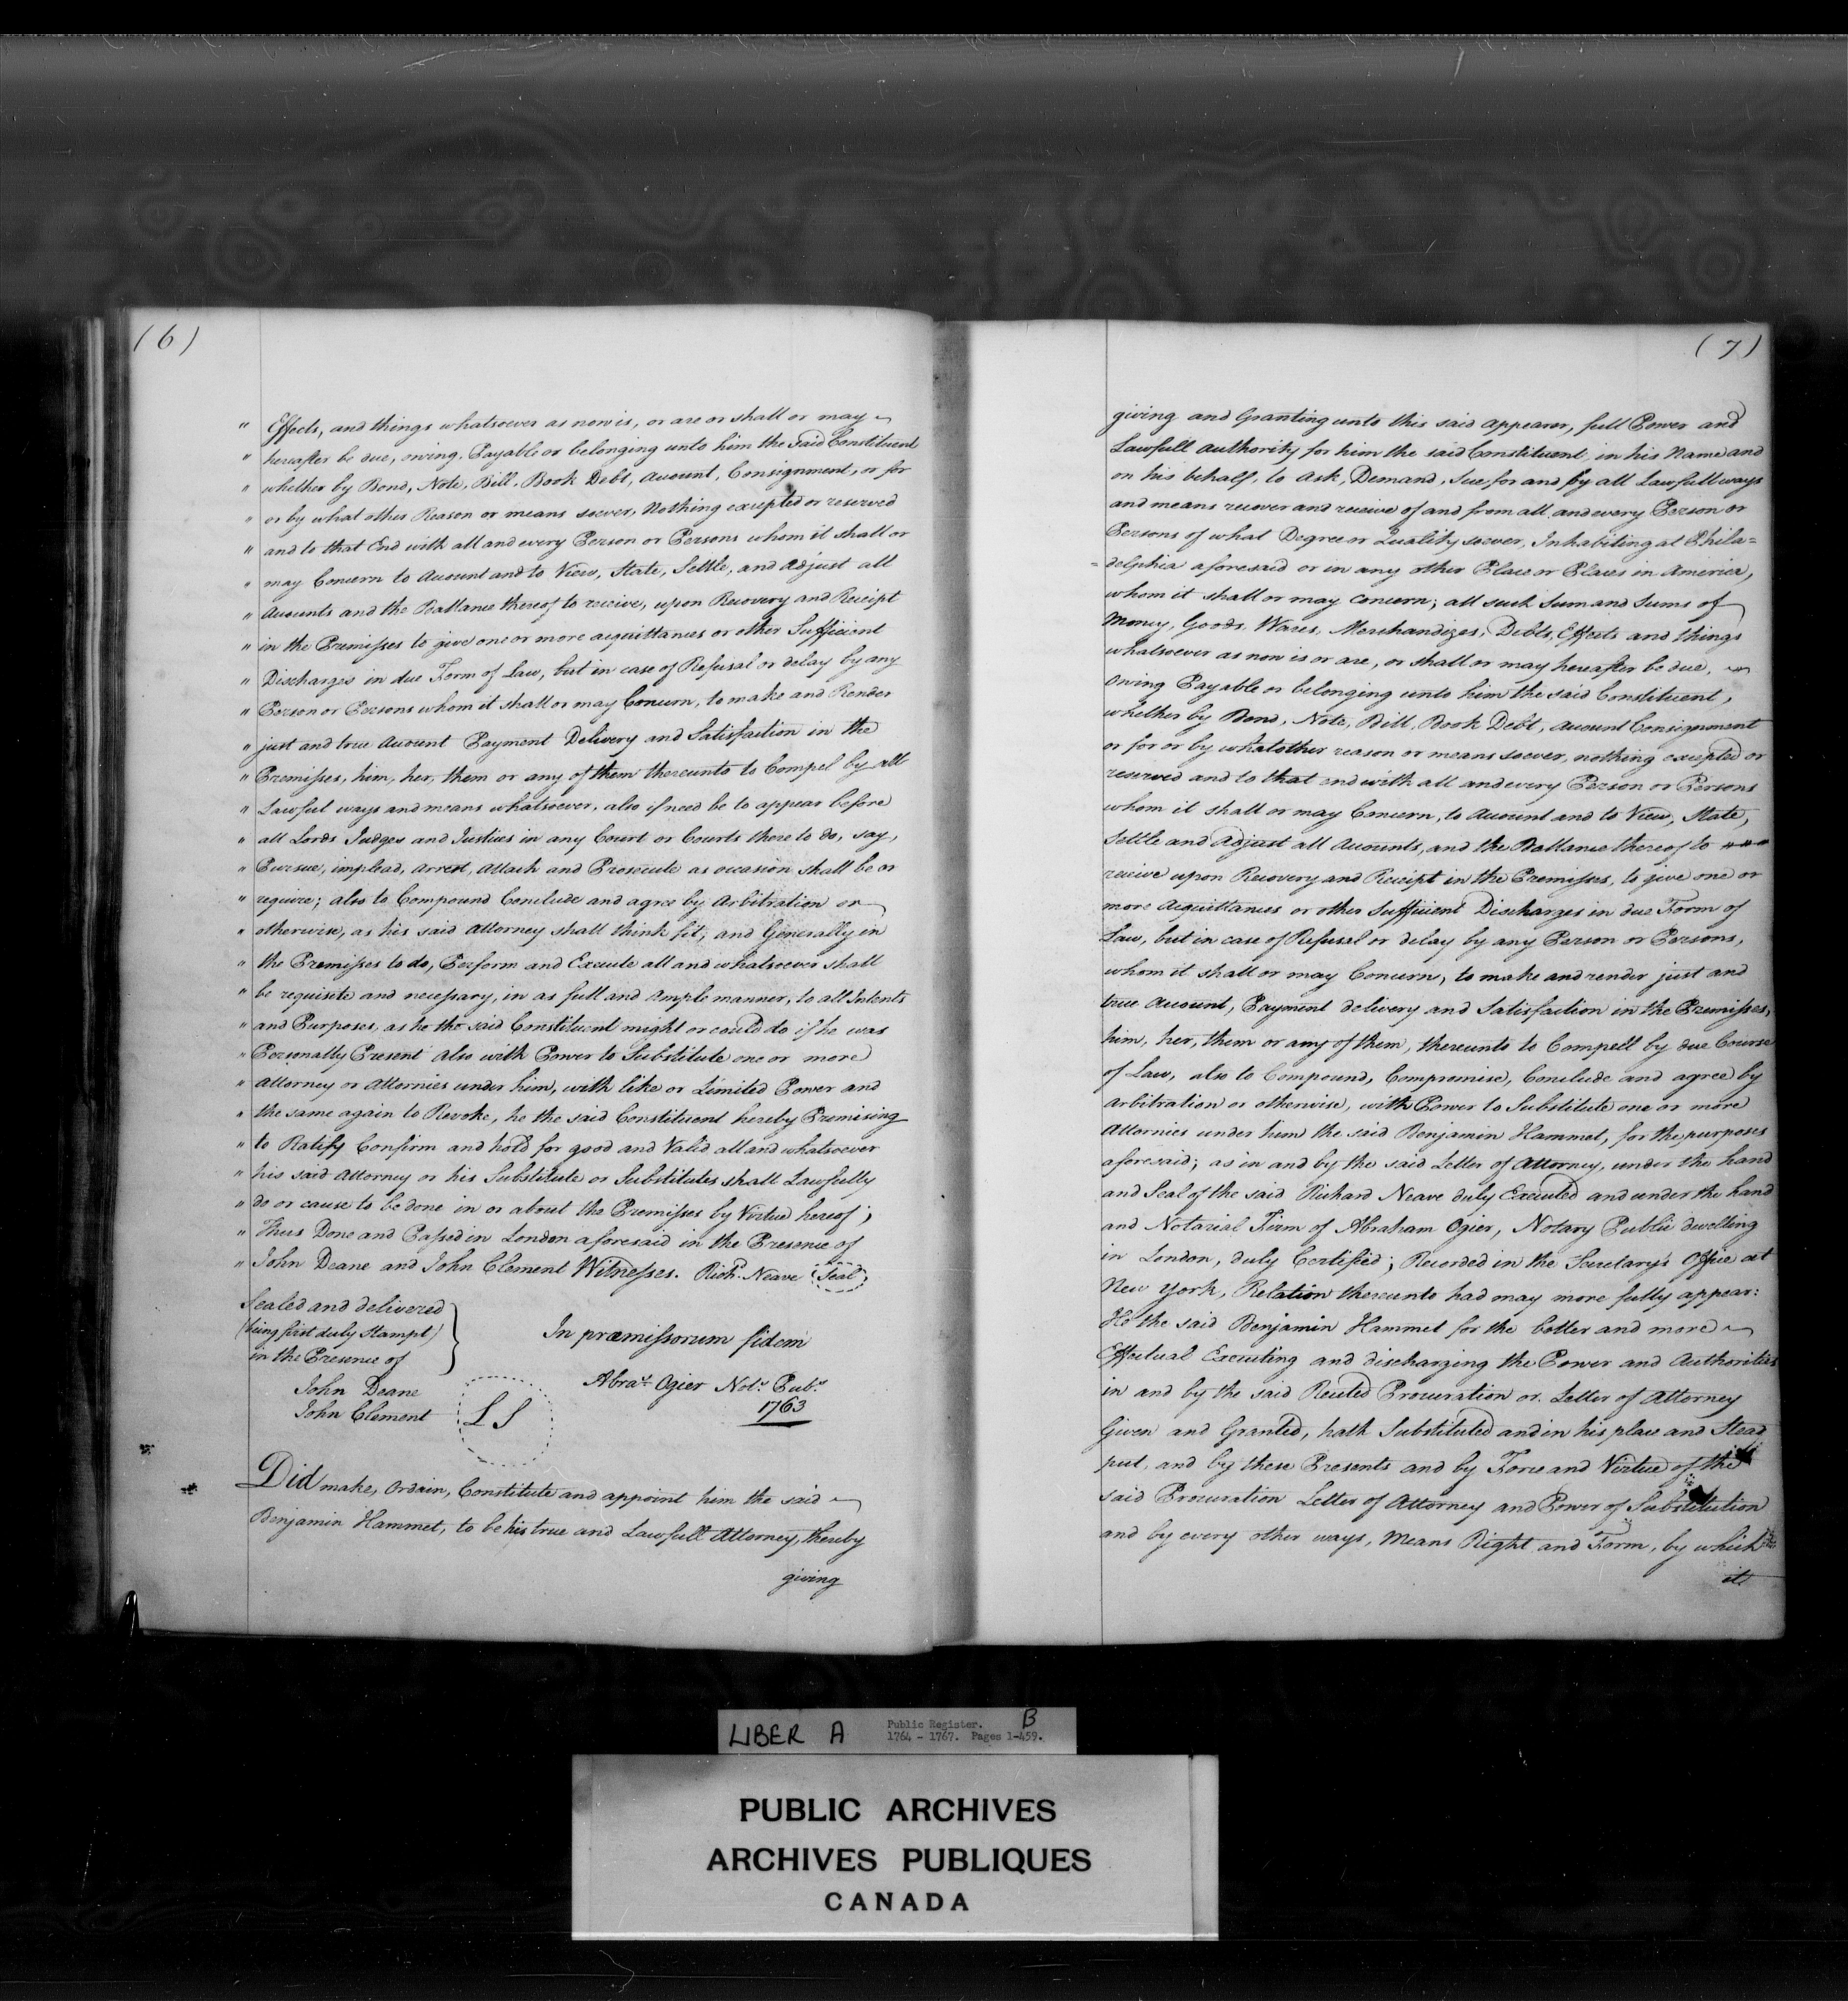 (6)
" Effects, and things whatsoever as now is, or are or shall or may
" hereafter be due, owing. Payable or belonging unto him the said Constituent
" whether by Bond, Note, Bill, Book Debt, Account, Consignment, or for
" or by what other Reason or means soever, Nothing excepted or reserved
" and to that End with all and every Person or Persons whom it shall or
" may Concern to Account and to View, State, Settle, and Adjust all
" Accounts and the Ballance thereof to receive, upon Recovery and Receipt
" in the Premisses to give one or more acquittances or other Sufficient
" Discharges in due Form of Law, but in case of Refusal or delay by any
" Person or Persons whom it shall or may Concern, to make and Render
" just and true Account Payment Delivery and Satisfaction in the
" Premisses, him, her, them or any of them thereunto to Compel by all
" Lawful ways and means whatsoever, also if need be to appear before
" all Lords Judges and Justices in any Court or Courts there to do, say,
" Pursue, implead, Arrest, Attach and Prosecute as occasion shall be or
" require; also to Compound Conclude and agree by Arbitration or
" otherwise, as his said Attorney shall think fit; and Generally in
" the Premisses to do, Perform and Execute all and whatsoever shall
" be requisite and necessary, in as full and Ample manner, to all Intents
" and Purposes, as he the said Constituent might or could do if he was
" Personally Present Also with Power to Substitute one or more
" Attorney or Attornies under him, with like or Limited Power and
" the same again to Revoke, he the said Constituent hereby Promising
" to Ratify Confirm and hold for good and Valid all and whatsoever
" his said Attorney or his Substitute or Substitutes shall Lawfully
" do or cause to be done in or about the Premisses by Virtue hereof;
" Thus Done and Passed in London aforesaid in the Presence of
" John Deane and John Clement Witnesses. Richd. Neave (Seal)
Sealed and delivered
(being first duly Stampt)
in the Presence of
John Deane
John Clement
L S
In præmissorum fidem
Abram. Ogier Noty. Pubc.
1763
Did make, Ordain, Constitute and appoint him the said
Benjamin Hammet, to be his true and Lawfull Attorney, thereby
giving
(7)
giving and Granting unto this said appearer, full Power and
Lawfull Authority for him the said Constituent, in his Name and
on his behalf, to Ask, Demand, Sue for and by all Lawfull ways
and means recover and receive of and from all and every Person or
Persons of what Degree or Quality soever, Inhabiting at Phila=
=delphia aforesaid or in any other Place or Places in America,
whom it shall or may concern; all such Sum and Sums of
Money, Goods, Wares, Merchandizes, Debts, Effects and things
whatsoever as now is or are, or shall or may hereafter be due,
Owing Payable or belonging unto him the said Constituent,
whether by Bond, Note, Bill, Book Debt, Account Consignment
or for or by what other reason or means soever, nothing excepted or
reserved and to that end with all and every Person or Persons
whom it shall or may Concern, to Account and to View, State,
Settle and Adjust all Accounts, and the Ballance thereof to
receive upon Recovery and Receipt in the Premisses, to give one or
more Acquittances or other Sufficient Discharges in due Form of
Law, but in case of Refusal or delay by any Person or Persons,
whom it shall or may Concern, to make and render just and
true Account, Payment delivery and Satisfaction in the Premisses,
him, her, them or any of them, thereunto to Compell by due Course
of Law, also to Compound, Compromise, Conclude and agree by
Arbitration or otherwise, with Power to Substitute one or more
Attornies under him the said Benjamin Hammet, for the purposes
aforesaid; as in and by the said Letter of Attorney, under the hand
and Seal of the said Richard Neave duly Executed and under the hand
and Notarial Firm of Abraham Ogier, Notary Public dwelling
in London, duly Certified; Recorded in the Secretary's Office at
New York, Relation thereunto had may more fully appear:
He the said Benjamin Hammet for the better and more
Effectual Executing and discharging the Power and Authorities
in and by the said Recited Procuration or Letter of Attorney
Given and Granted, hath Substituted and in his place and Stead
put, and by these Presents and by Force and Virtue of the
said Procuration Letter of Attorney and Power of Substitution
and by every other ways, Means Right and Form, by which
it
LIBER A
Public Register. B
1764 - 1767. Pages 1-459.
PUBLIC ARCHIVES
ARCHIVES PUBLIQUES
CANADA